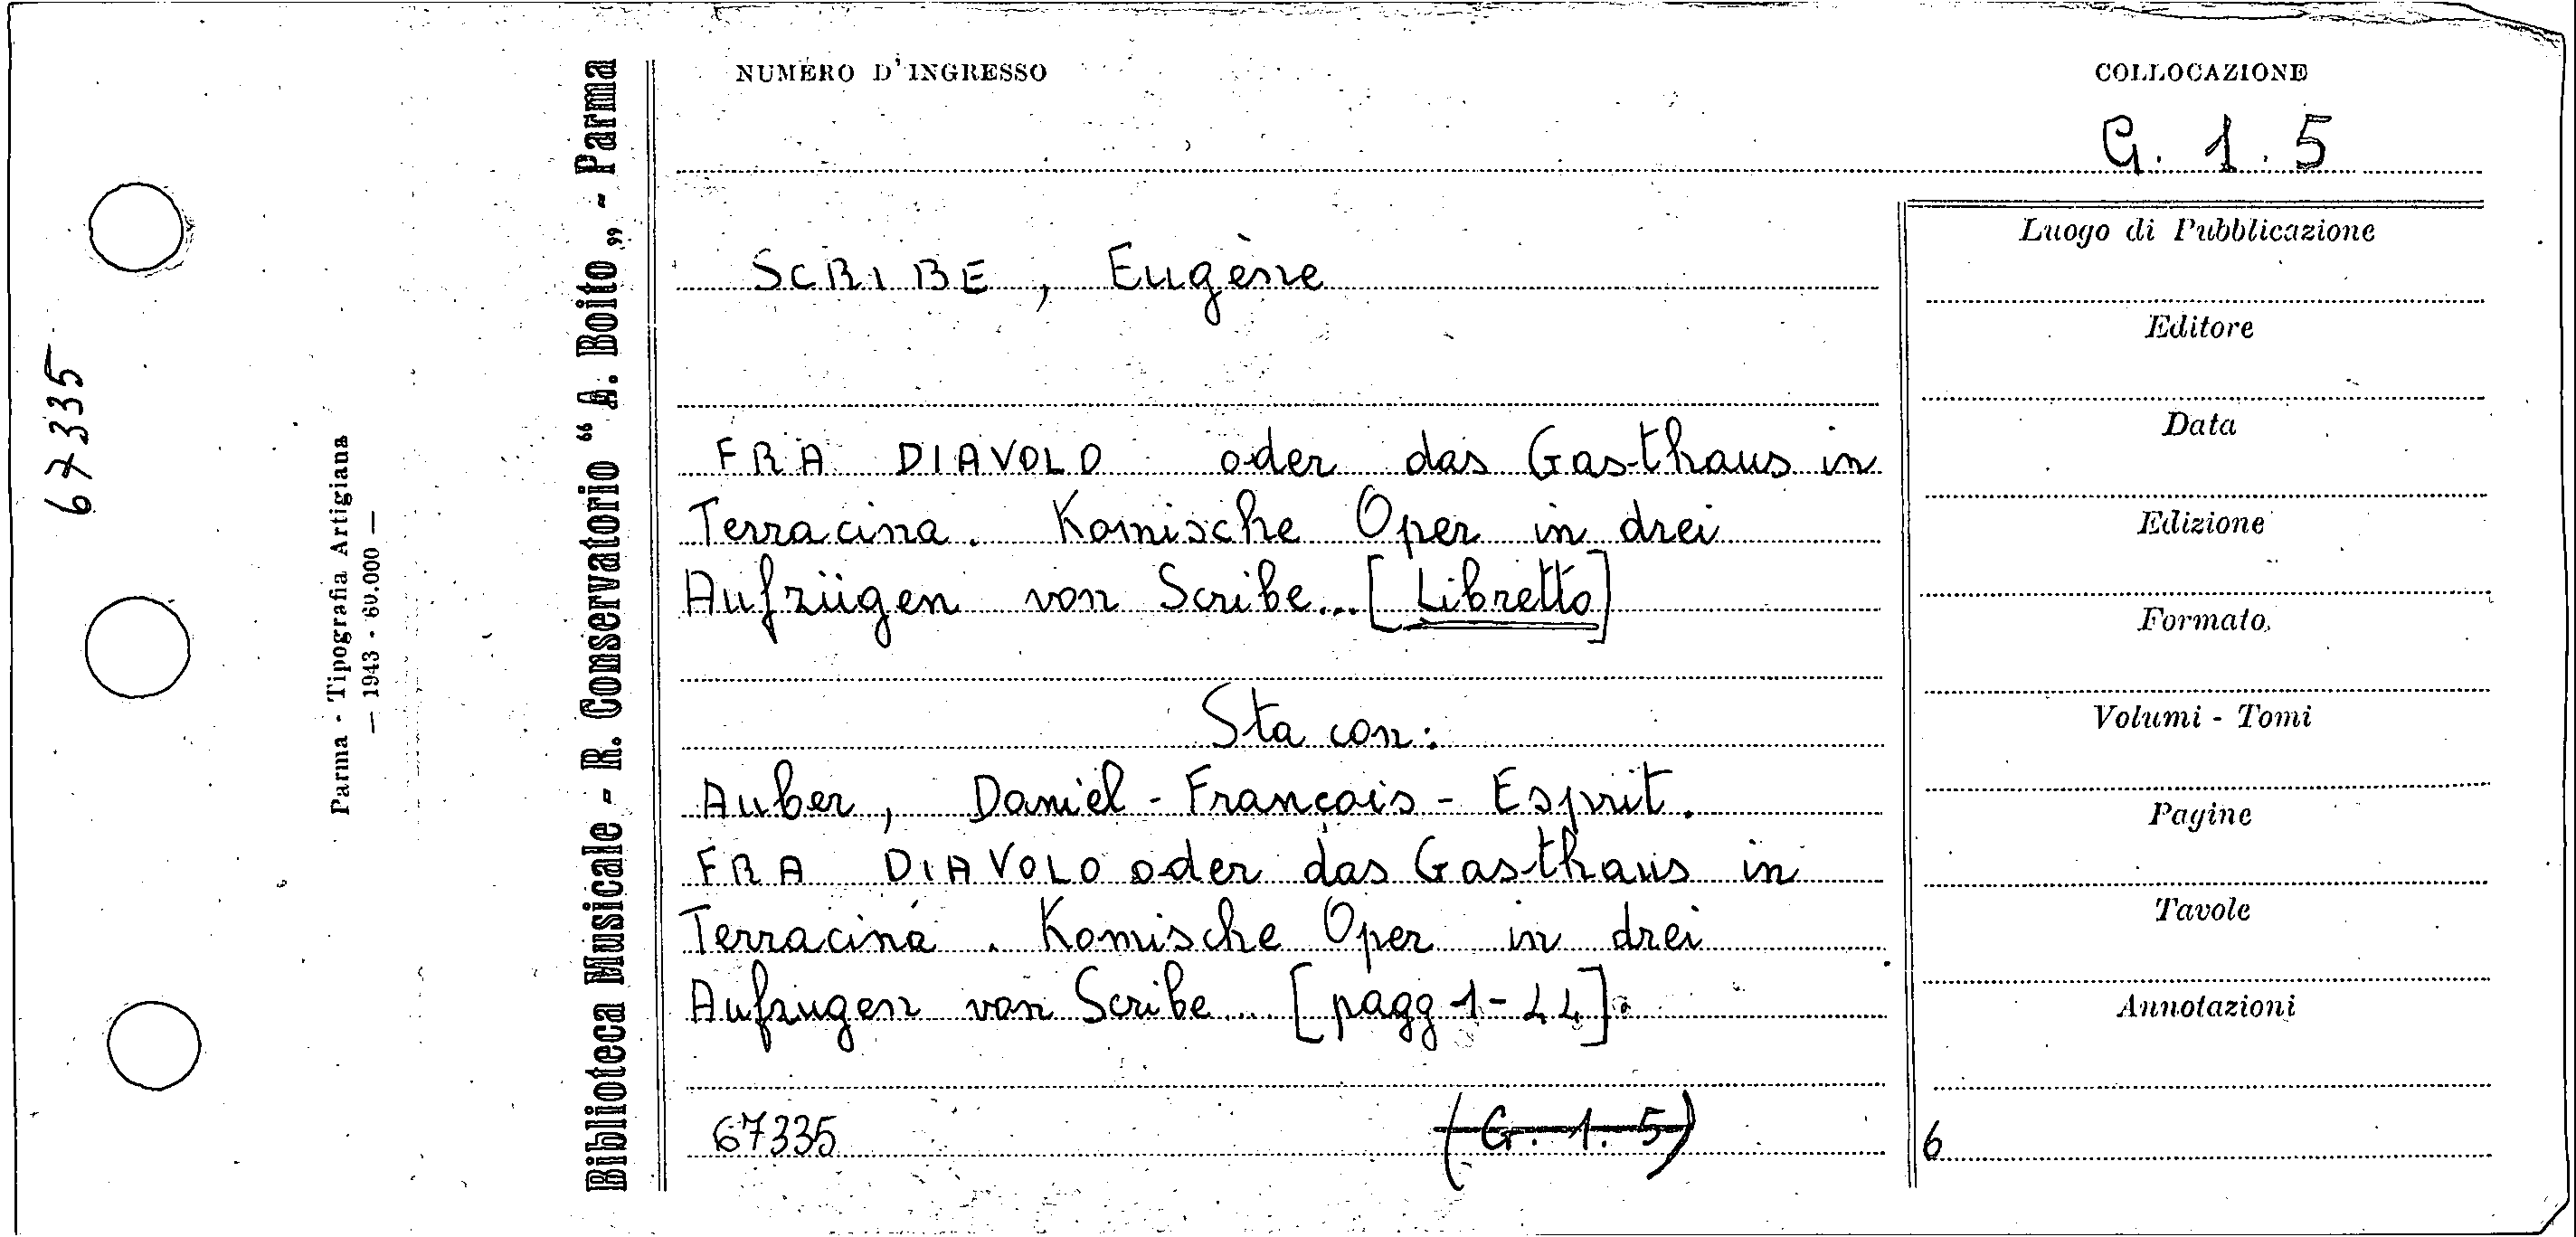 67335
Parma - Tipografia Artigiana
— 1943 - 60.000 —
Biblioteca Musicale - R. Conservatorio “ A. Boito „ - Parma
NUMERO D'INGRESSO
COLLOCAZIONE
G. 1. 5
SCRIBE, Eugène
FRA DIAVOLO oder das Gasthaus in
Terracina. Komische Oper in drei
Aufzügen von Scribe... [Libretto]
Sta con:
Auber, Daniel-François-Esprit.
FRA DIAVOLO oder das Gasthaus in
Terracina. Komische Oper in drei
Aufzugen von Scribe.... [pagg 1-44].
67335
(G. 1. 5)
Luogo di Pubblicazione
Editore
Data
Edizione
Formato
Volumi - Tomi
Pagine
Tavole
Annotazioni
6